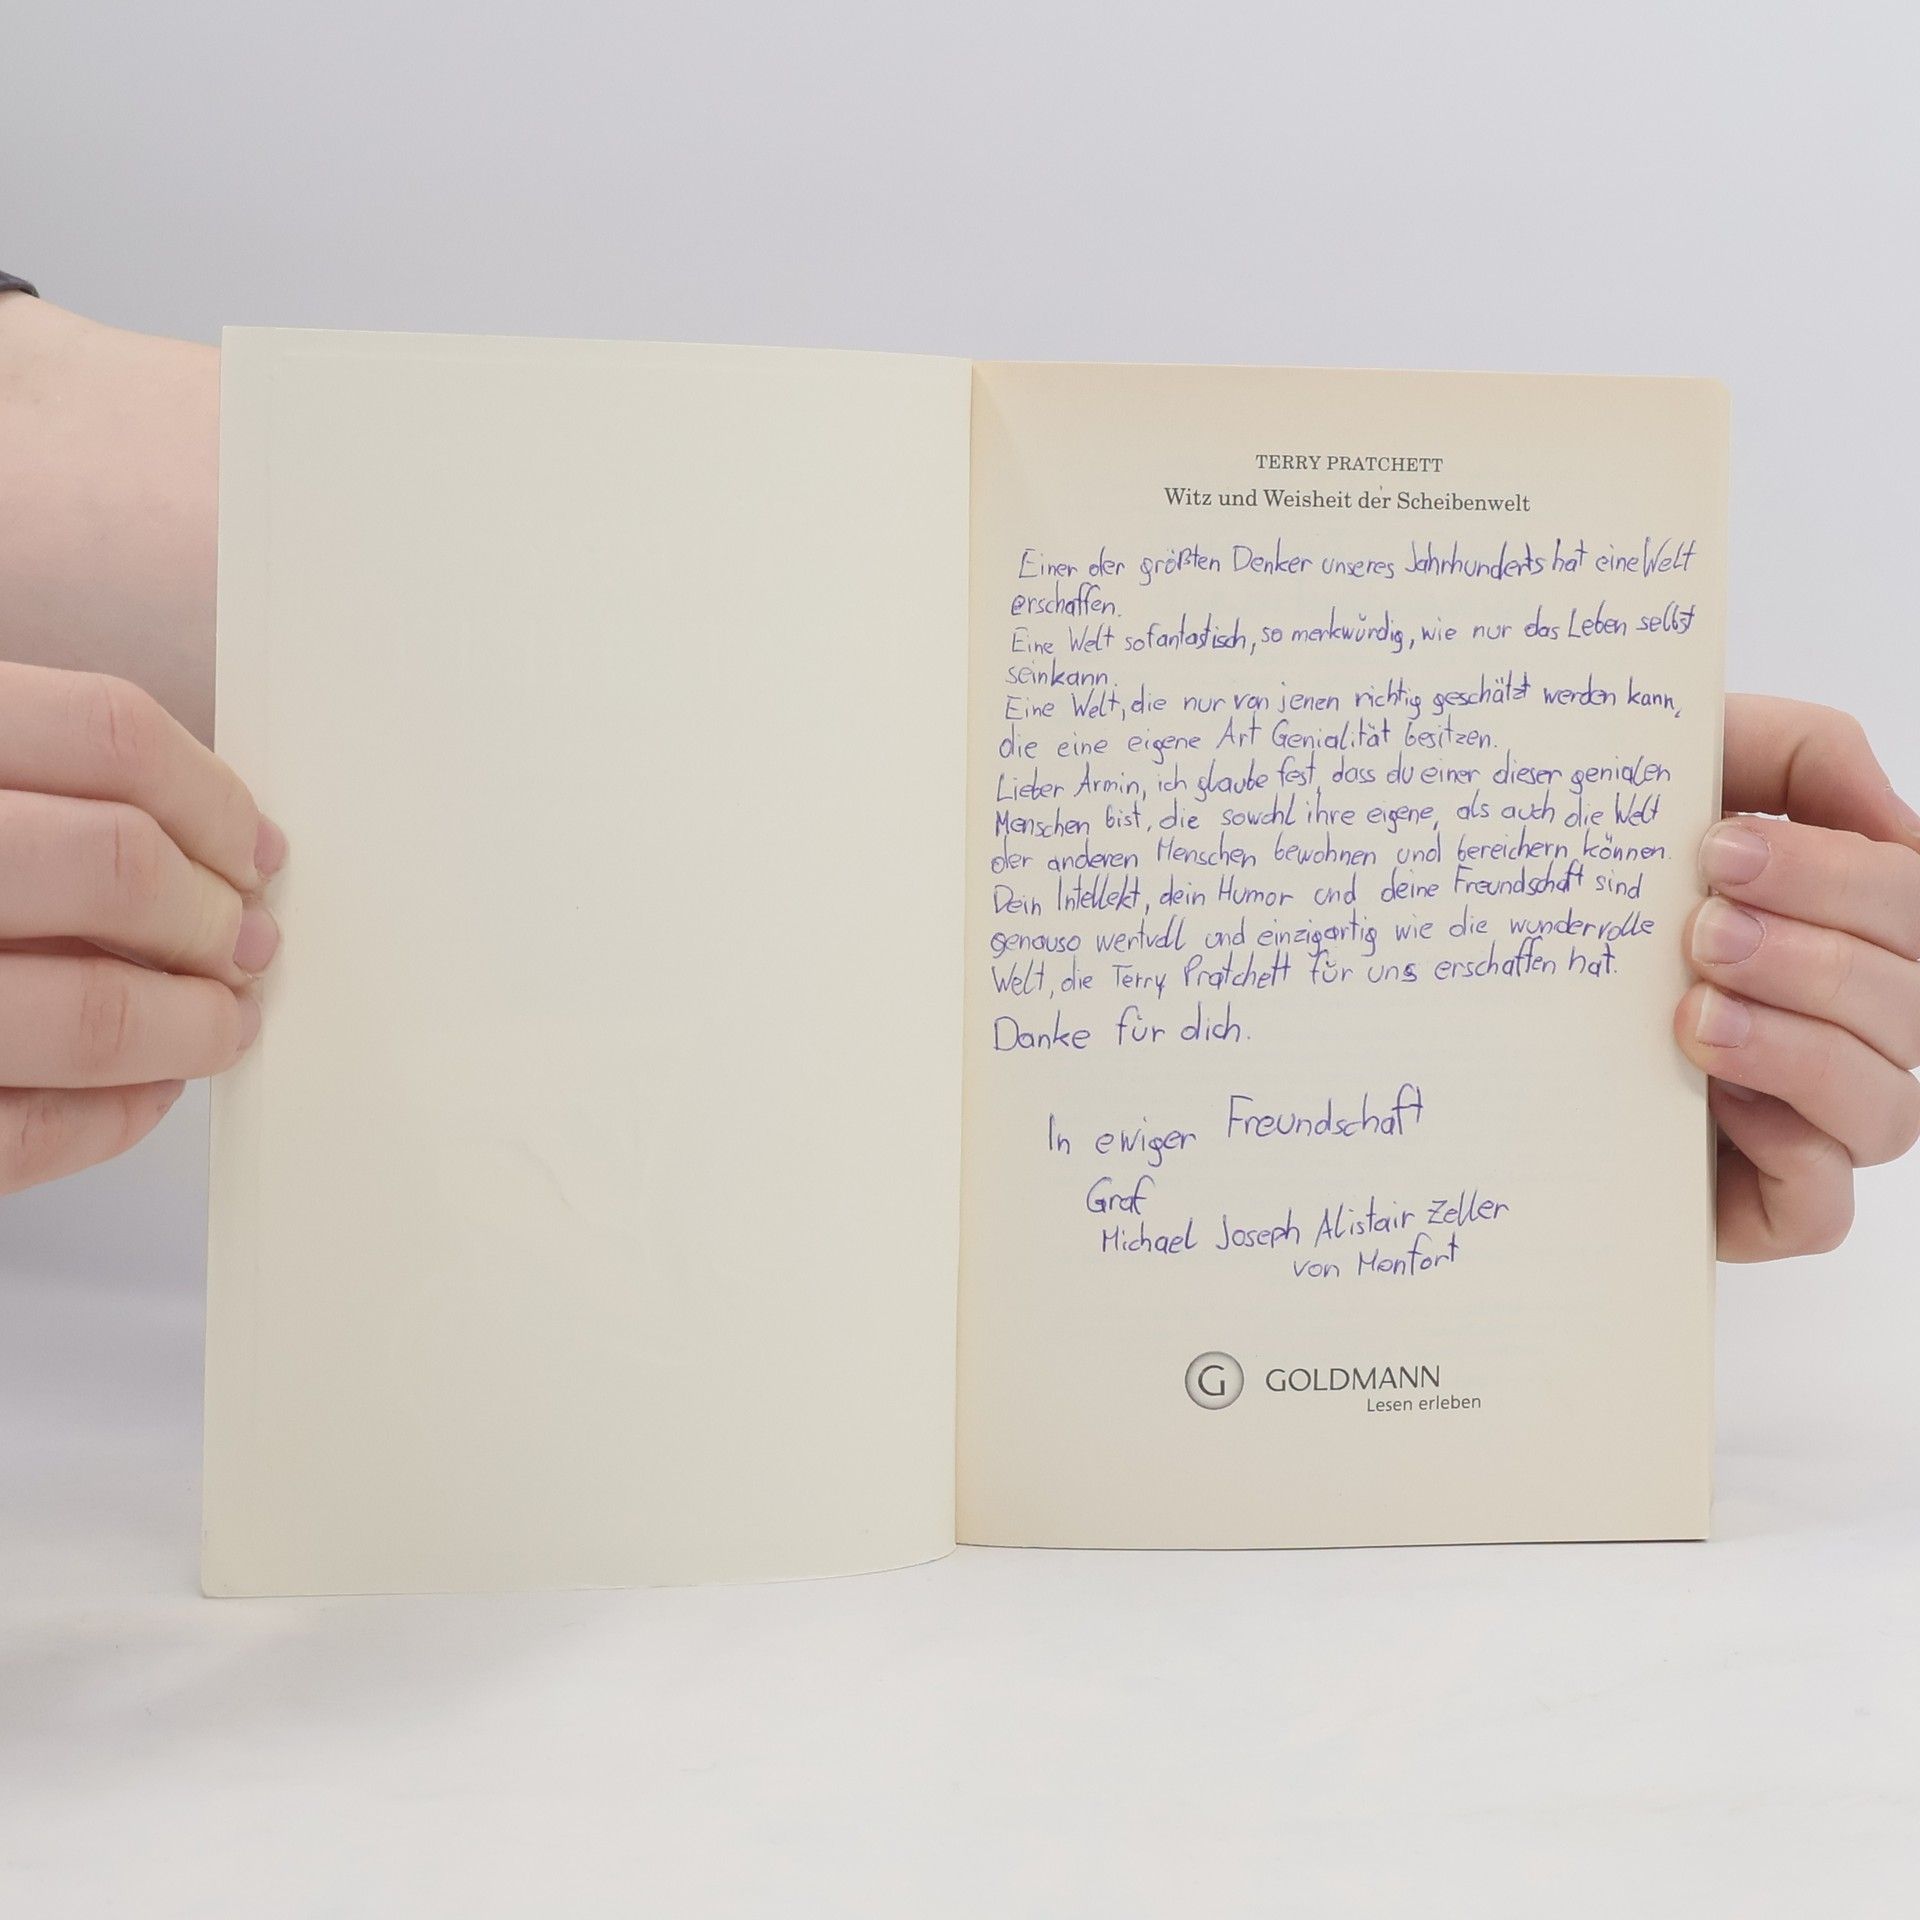 TERRY PRATCHETT
Witz und Weisheit der Scheibenwelt
Einer der größten Denker unseres Jahrhunderts hat eine Welt
erschaffen.
Eine Welt so fantastisch, so merkwürdig, wie nur das Leben selbst
sein kann.
Eine Welt, die nur von jenen richtig geschätzt werden kann,
die eine eigene Art Genialität besitzen.
Lieber Armin, ich glaube fest, dass du einer dieser genialen
Menschen bist, die sowohl ihre eigene, als auch die Welt
der anderen Menschen bewohnen und bereichern können.
Dein Intellekt, dein Humor und deine Freundschaft sind
genauso wertvoll und einzigartig wie die wundervolle
Welt, die Terry Pratchett für uns erschaffen hat.
Danke für dich.
In ewiger Freundschaft
Graf
Michael Joseph Alistair Zeller
von Monfort
G GOLDMANN
Lesen erleben